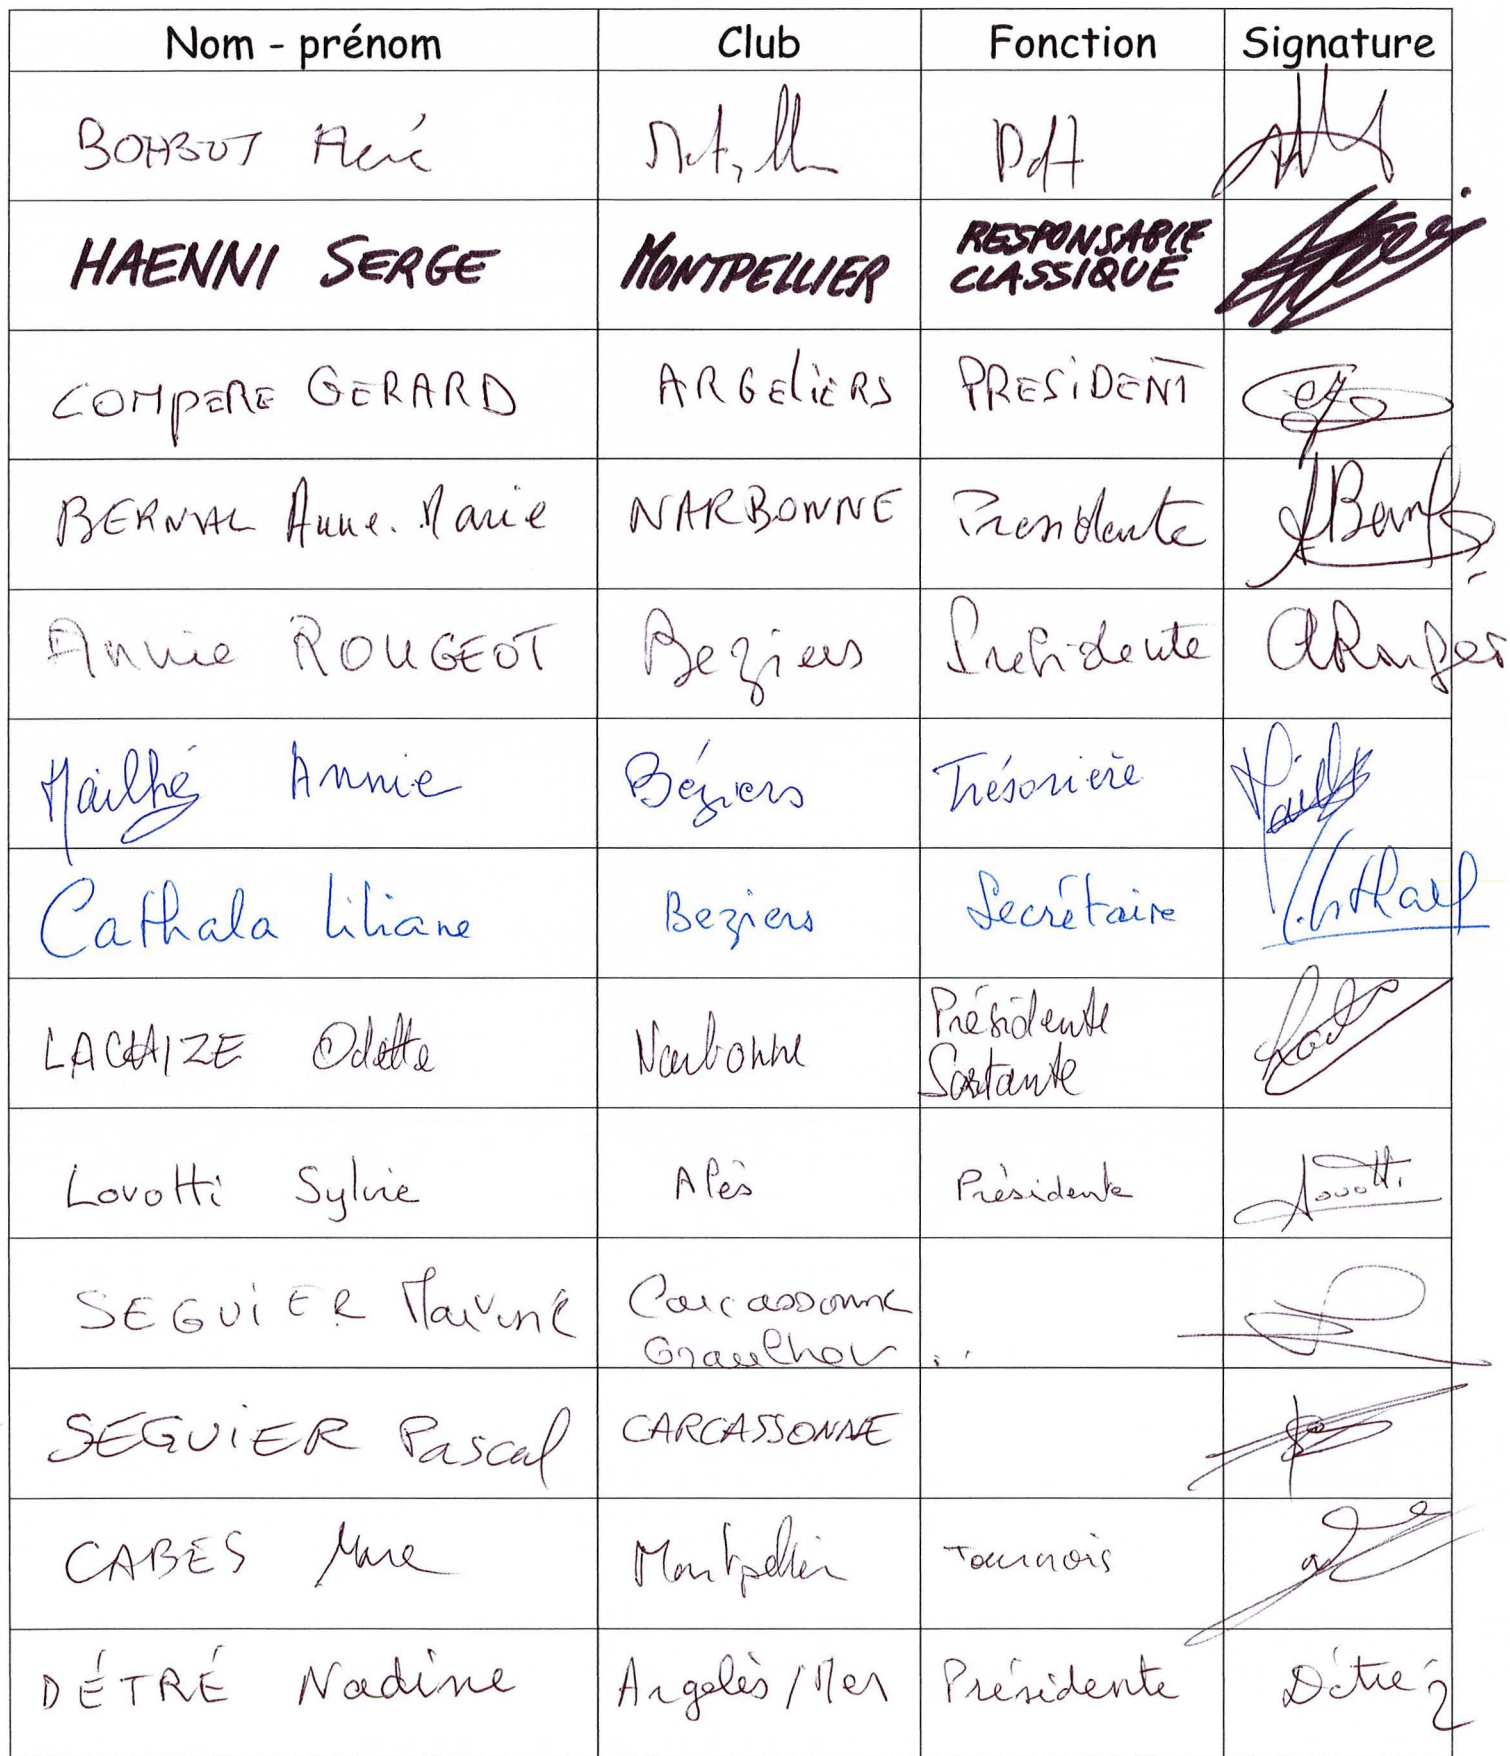 Nom - prénom Club Fonction Signature
BOHBOT
HAENNI SERGE MONTPELLIER RESPONSABLE
CLASSIQUE
COMPERE GERARD ARGELIERS PRESIDENT
BERNAL Anne-Marie NARBONNE Presidente
Annie ROUGEOT Beziers Présidente
Mailhé Annie Béziers Trésorière
Cathala Liliane Beziers Secrétaire
LACHAIZE Odette Narbonne Présidente
Sortante
Lovotti Sylvie Alès Présidente Lovotti
SEGUIER Carcassonne
Graulhet
SEGUIER Pascal CARCASSONNE
CABES Marc Montpellier Tournois
DÉTRÉ Nadine Argelès/Mer Présidente Détré